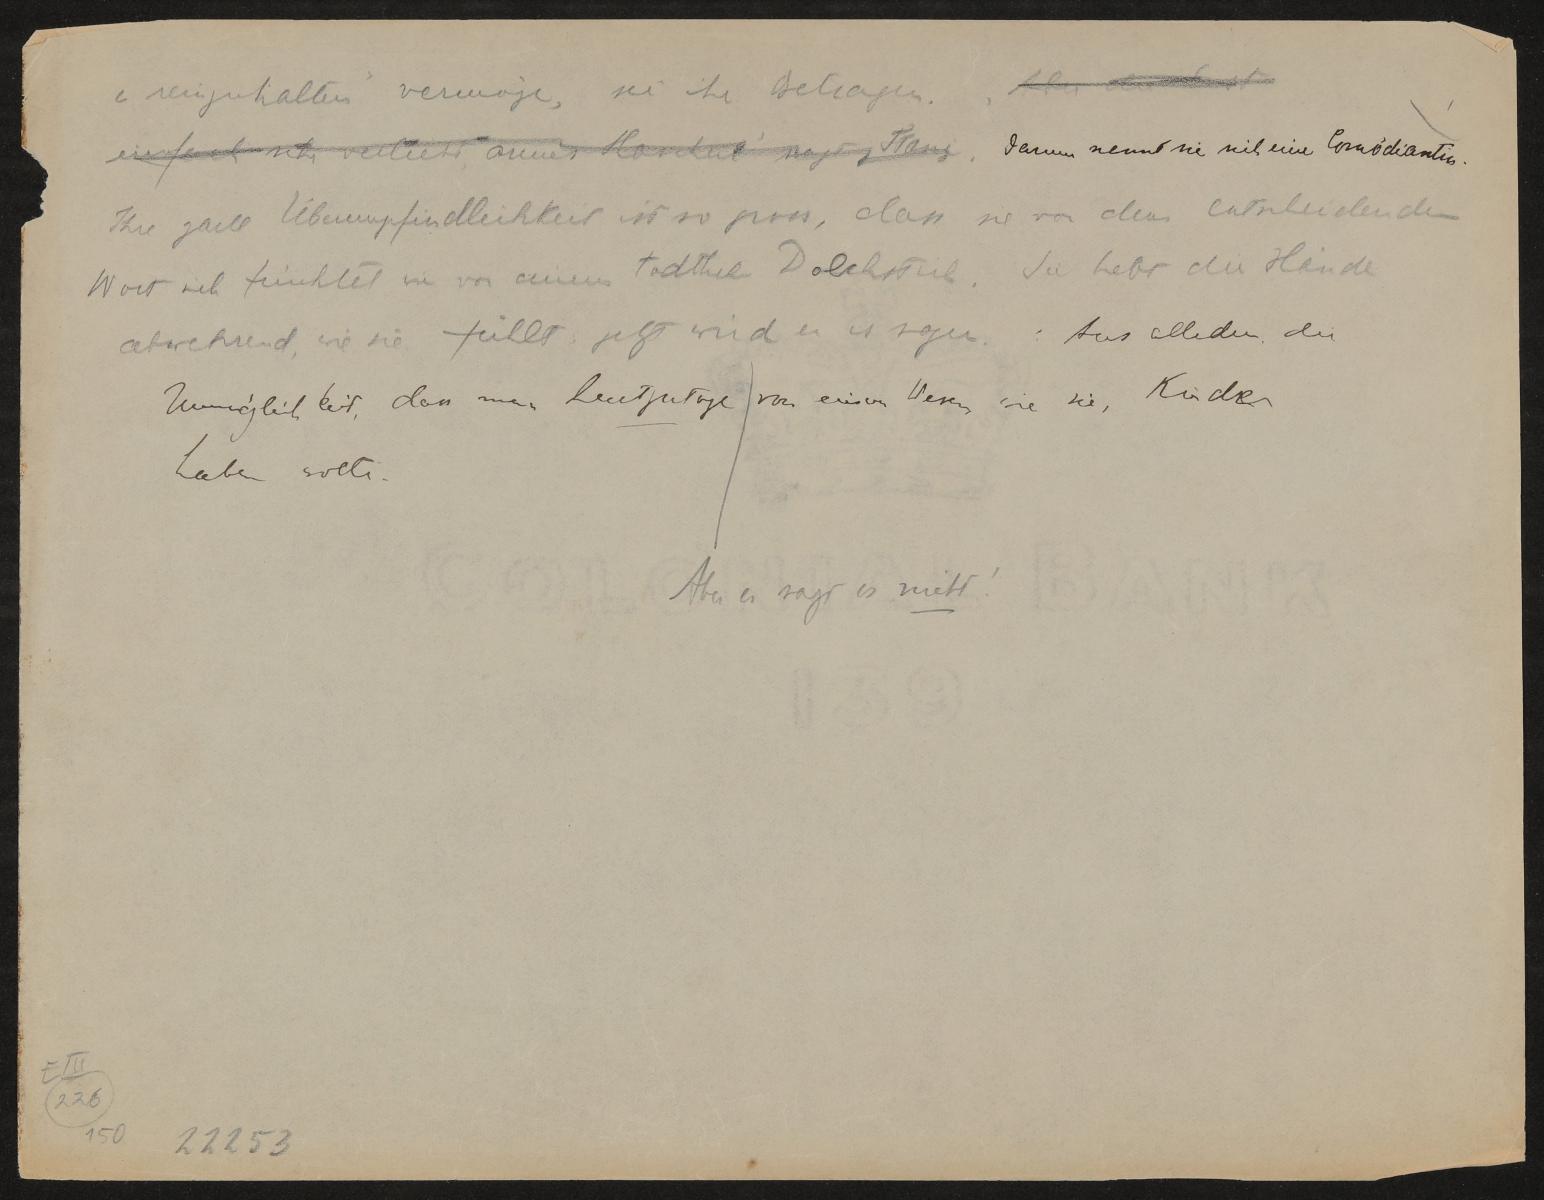 reinzuhalten" vermöge, sei ihr Betragen. Aber du bist
einfach sehr verliebt, armes Hascherl" sagt Franz. Darum nennt sie sich eine Comödiantin.
Ihre zarte Überempfindlichkeit ist so gross, dass sie vor dem entscheidenden
Wort sich fürchtet wie vor einem todtlichen Dolchstich. Sie hebt die Hände
abwehrend, wie sie fühlt: jetzt wird er es sagen. : Aus alledem die
Unmöglichkeit, dass man heutzutage von einem Wesen wie sie, Kinder
haben sollte.
Aber er sagt es nicht!
E III
226
150
22253